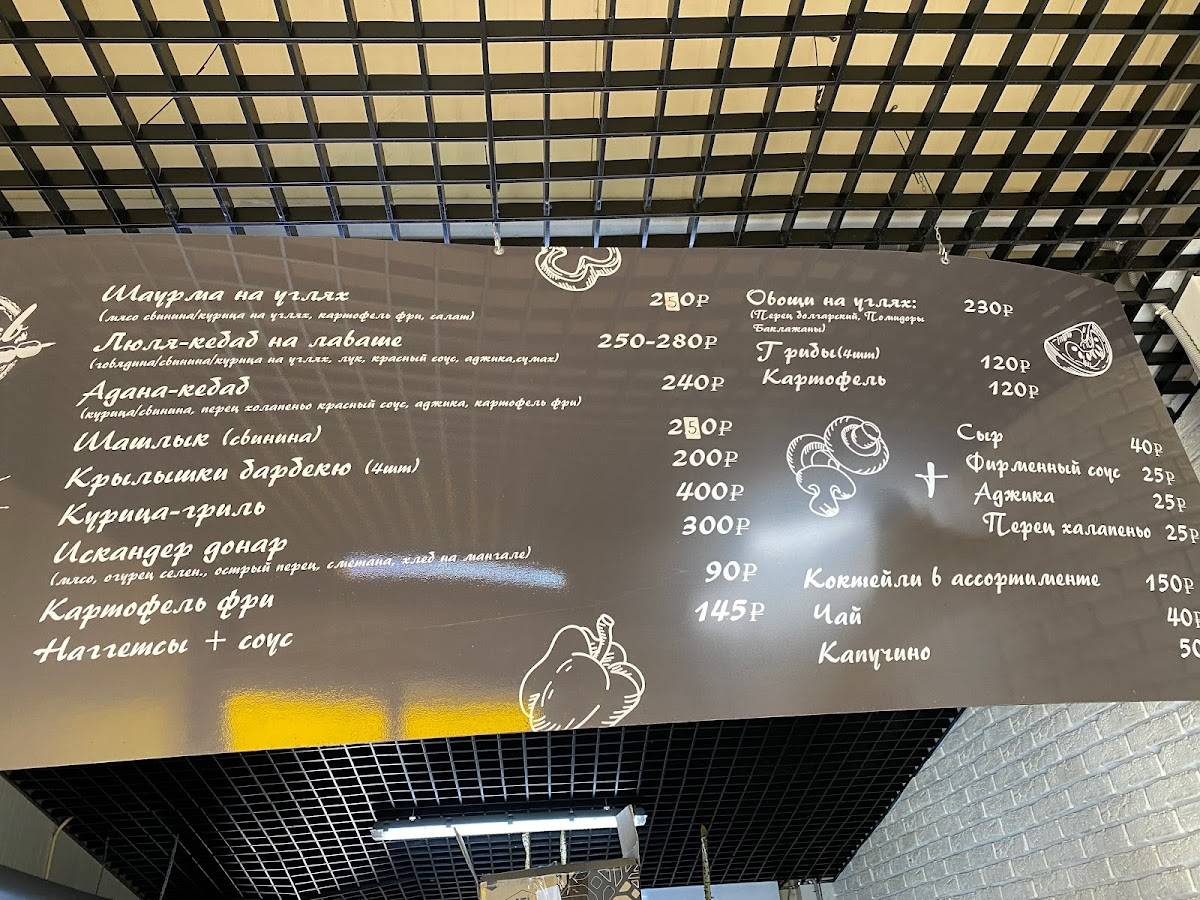 Шаурма на углях 250₽
(мясо свинина/курица на углях, картофель фри, салат)
Люля-кебаб на лаваше 250-280₽
(говядина/свинина/курица на углях, лук, красный соус, аджика,сумах)
Адана-кебаб 240₽
(курица/свинина, перец халапеньо красный соус, аджика, картофель фри)
Шашлык (свинина) 250₽
Крылышки барбекю (4шт) 200₽
Курица-гриль 400₽
Искандер донар 300₽
(мясо, огурец селен., острый перец, сметана, хлеб на мангале)
Картофель фри 90₽
Наггетсы + соус 145₽
Овощи на углях: 230₽
(Перец болгарский, Помидоры
Баклажаны)
Грибы(4шт) 120₽
Картофель 120₽
+
Сыр 40₽
Фирменный соус 25₽
Аджика 25₽
Перец халапеньо 25₽
Коктейли в ассортименте 150₽
Чай 40₽
Капучино 50